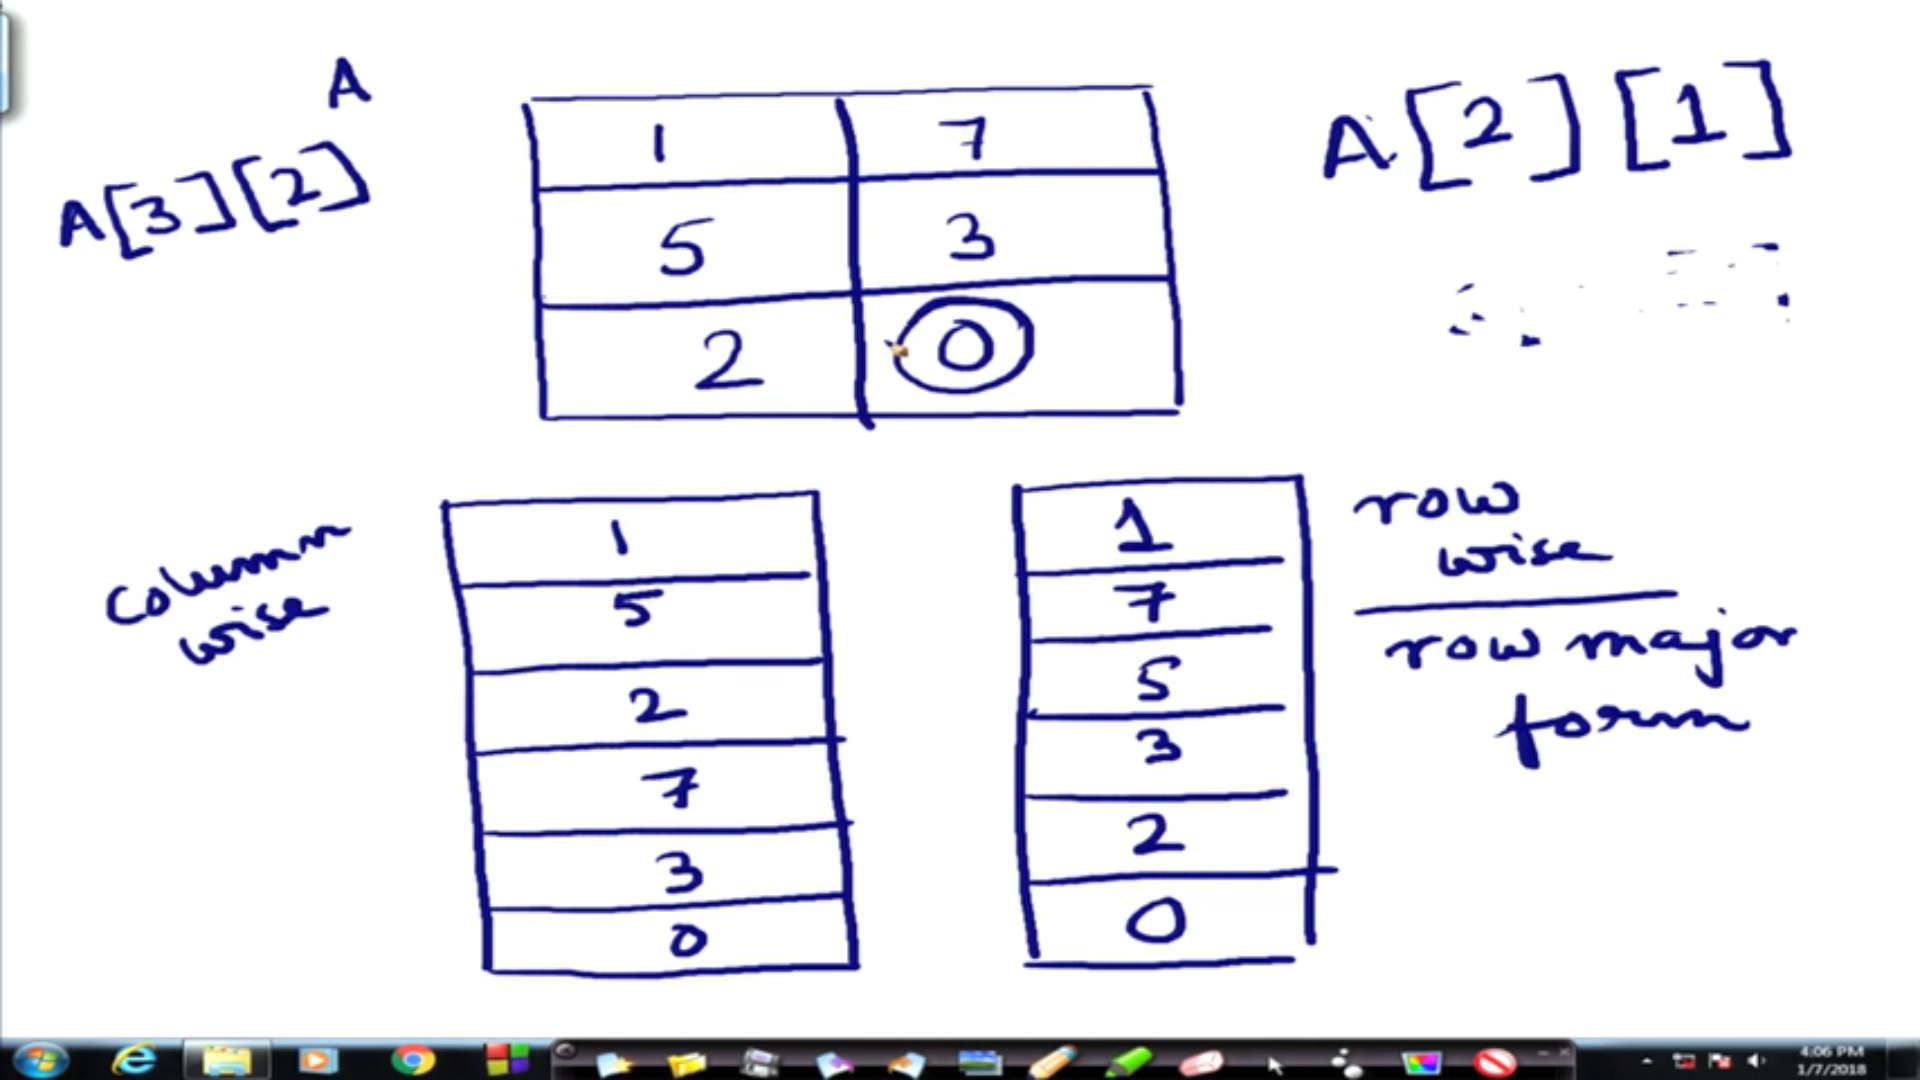 A
A[3][2]
1 7
5 3
2 0
A[2][1]
column
wise
1
5
2
7
3
0
1
7
5
3
2
0
row
wise
row major
form
4:06 PM
1/7/2018